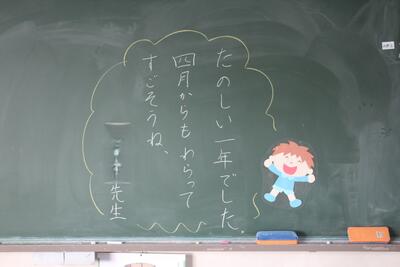 たのしい一年でした.
四月からもわらって
すごそうね、
先生